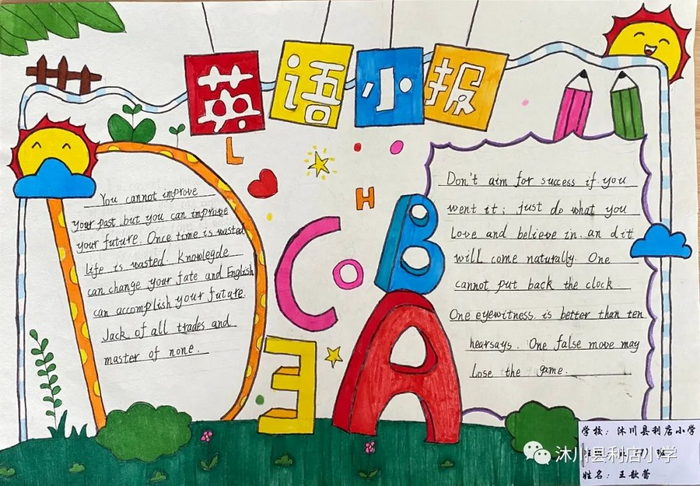 英语小报
L
H
C
o
B
A
E
You cannot improve
your past but you can improve
your future. Once time is wasted
life is wasted. Knowlegde
can change your fate and English
can accomplish your future.
Jack of all trades and
master of none.
Don't aim for success if you
went it; just do what you
Love and believe in. an dit
will come naturally. One
cannot put back the clock
One eyewitness is better than ten
hearsays. One false move may
Lose the game.
学校：沐川县利店小学
姓名：王歆蕾
沐川县利店小学